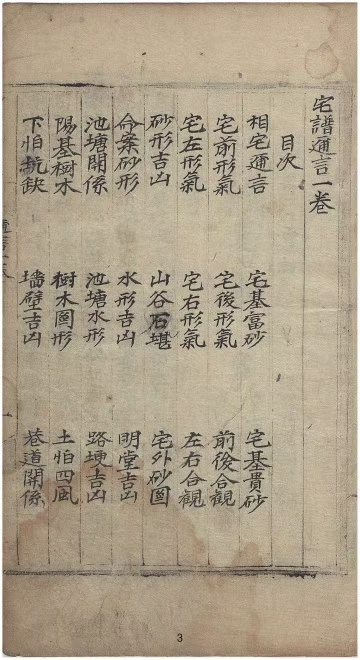 宅譜邇言一卷
目次
相宅邇言 宅基富砂 宅基貴砂
宅前形氣 宅後形氣 前後合觀
宅左形氣 宅右形氣 左右合觀
砂形吉凶 山谷石堪 宅外砂圖
命案砂形 水形吉凶 明堂吉凶
池塘開係 池塘水形 路埂吉凶
陽基樹木 樹木圖形 土怕四風
下怕坑缺 墻壁吉凶 巷道開係
3